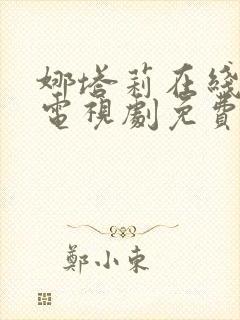 娜塔莉在线
電視劇免費
鄭小東